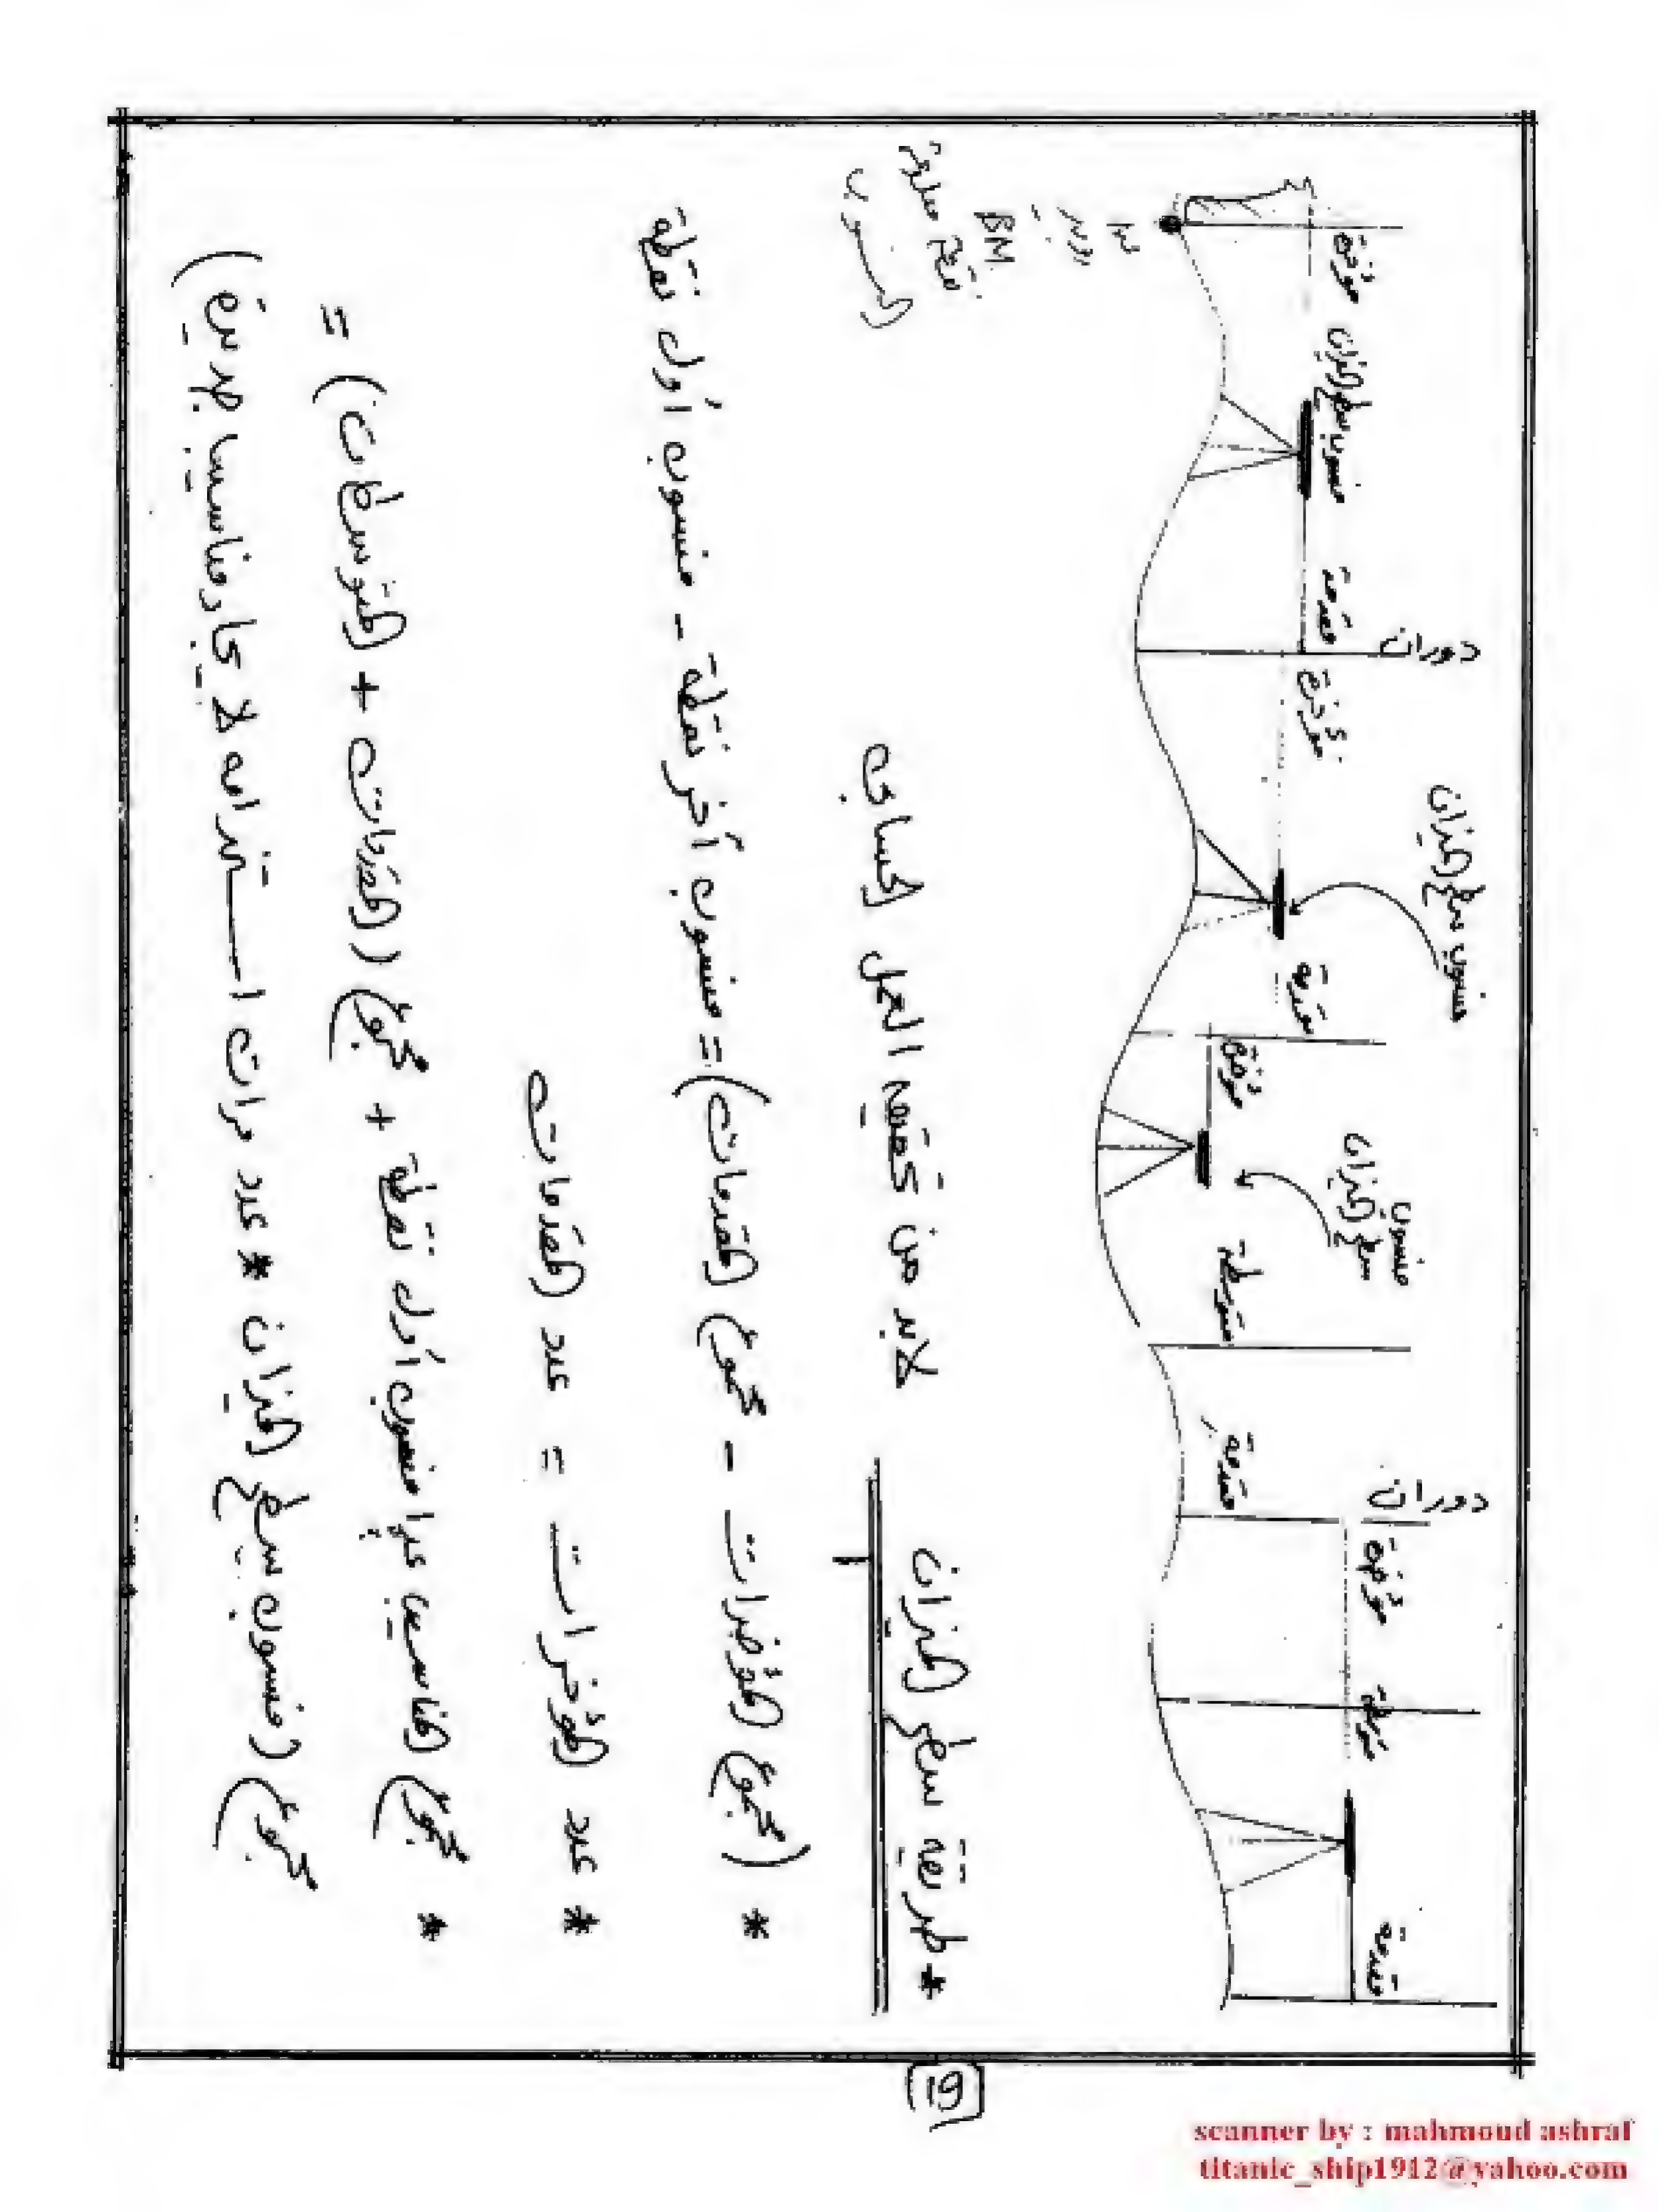 دوران
دوران
مؤخرة
منسوب سطح الميزان
مقدمة
مؤخرة
منسوب سطح الميزان
مقدمة
مؤخرة
منسوب
سطح الميزان
متوسطة
مقدمة
مؤخرة
متوسطة
مقدمة
روبير
BM
المنسوب
* طريقة سطح الميزان
لابد من تحقيق العمل الحسابى
* (مجموع المؤخرات - مجموع المقدمات) = منسوب أخر نقطة - منسوب أول نقطة
* عدد المؤخرات = عدد المقدمات
* مجموع المناسيب عدا منسوب أول نقطة + مجموع (المقدمات + المتوسطات) =
مجموع (منسوب سطح الميزان * عدد مرات استخدامه لايجاد مناسيب جديدة)
19
scanner by : mahmoud ashraf
titanic_ship1912@yahoo.com